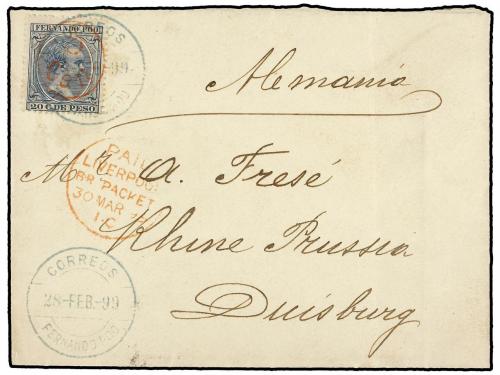 FERNANDO POO
20 C. DE PESO
CORREOS
99
Alemania
PAID
LIVERPOOL
BR PACKET
30 MAR
Mr A. Fresé
Rhine Prussia
Duisburg
CORREOS
28-FEB.-99
FERNANDO POO